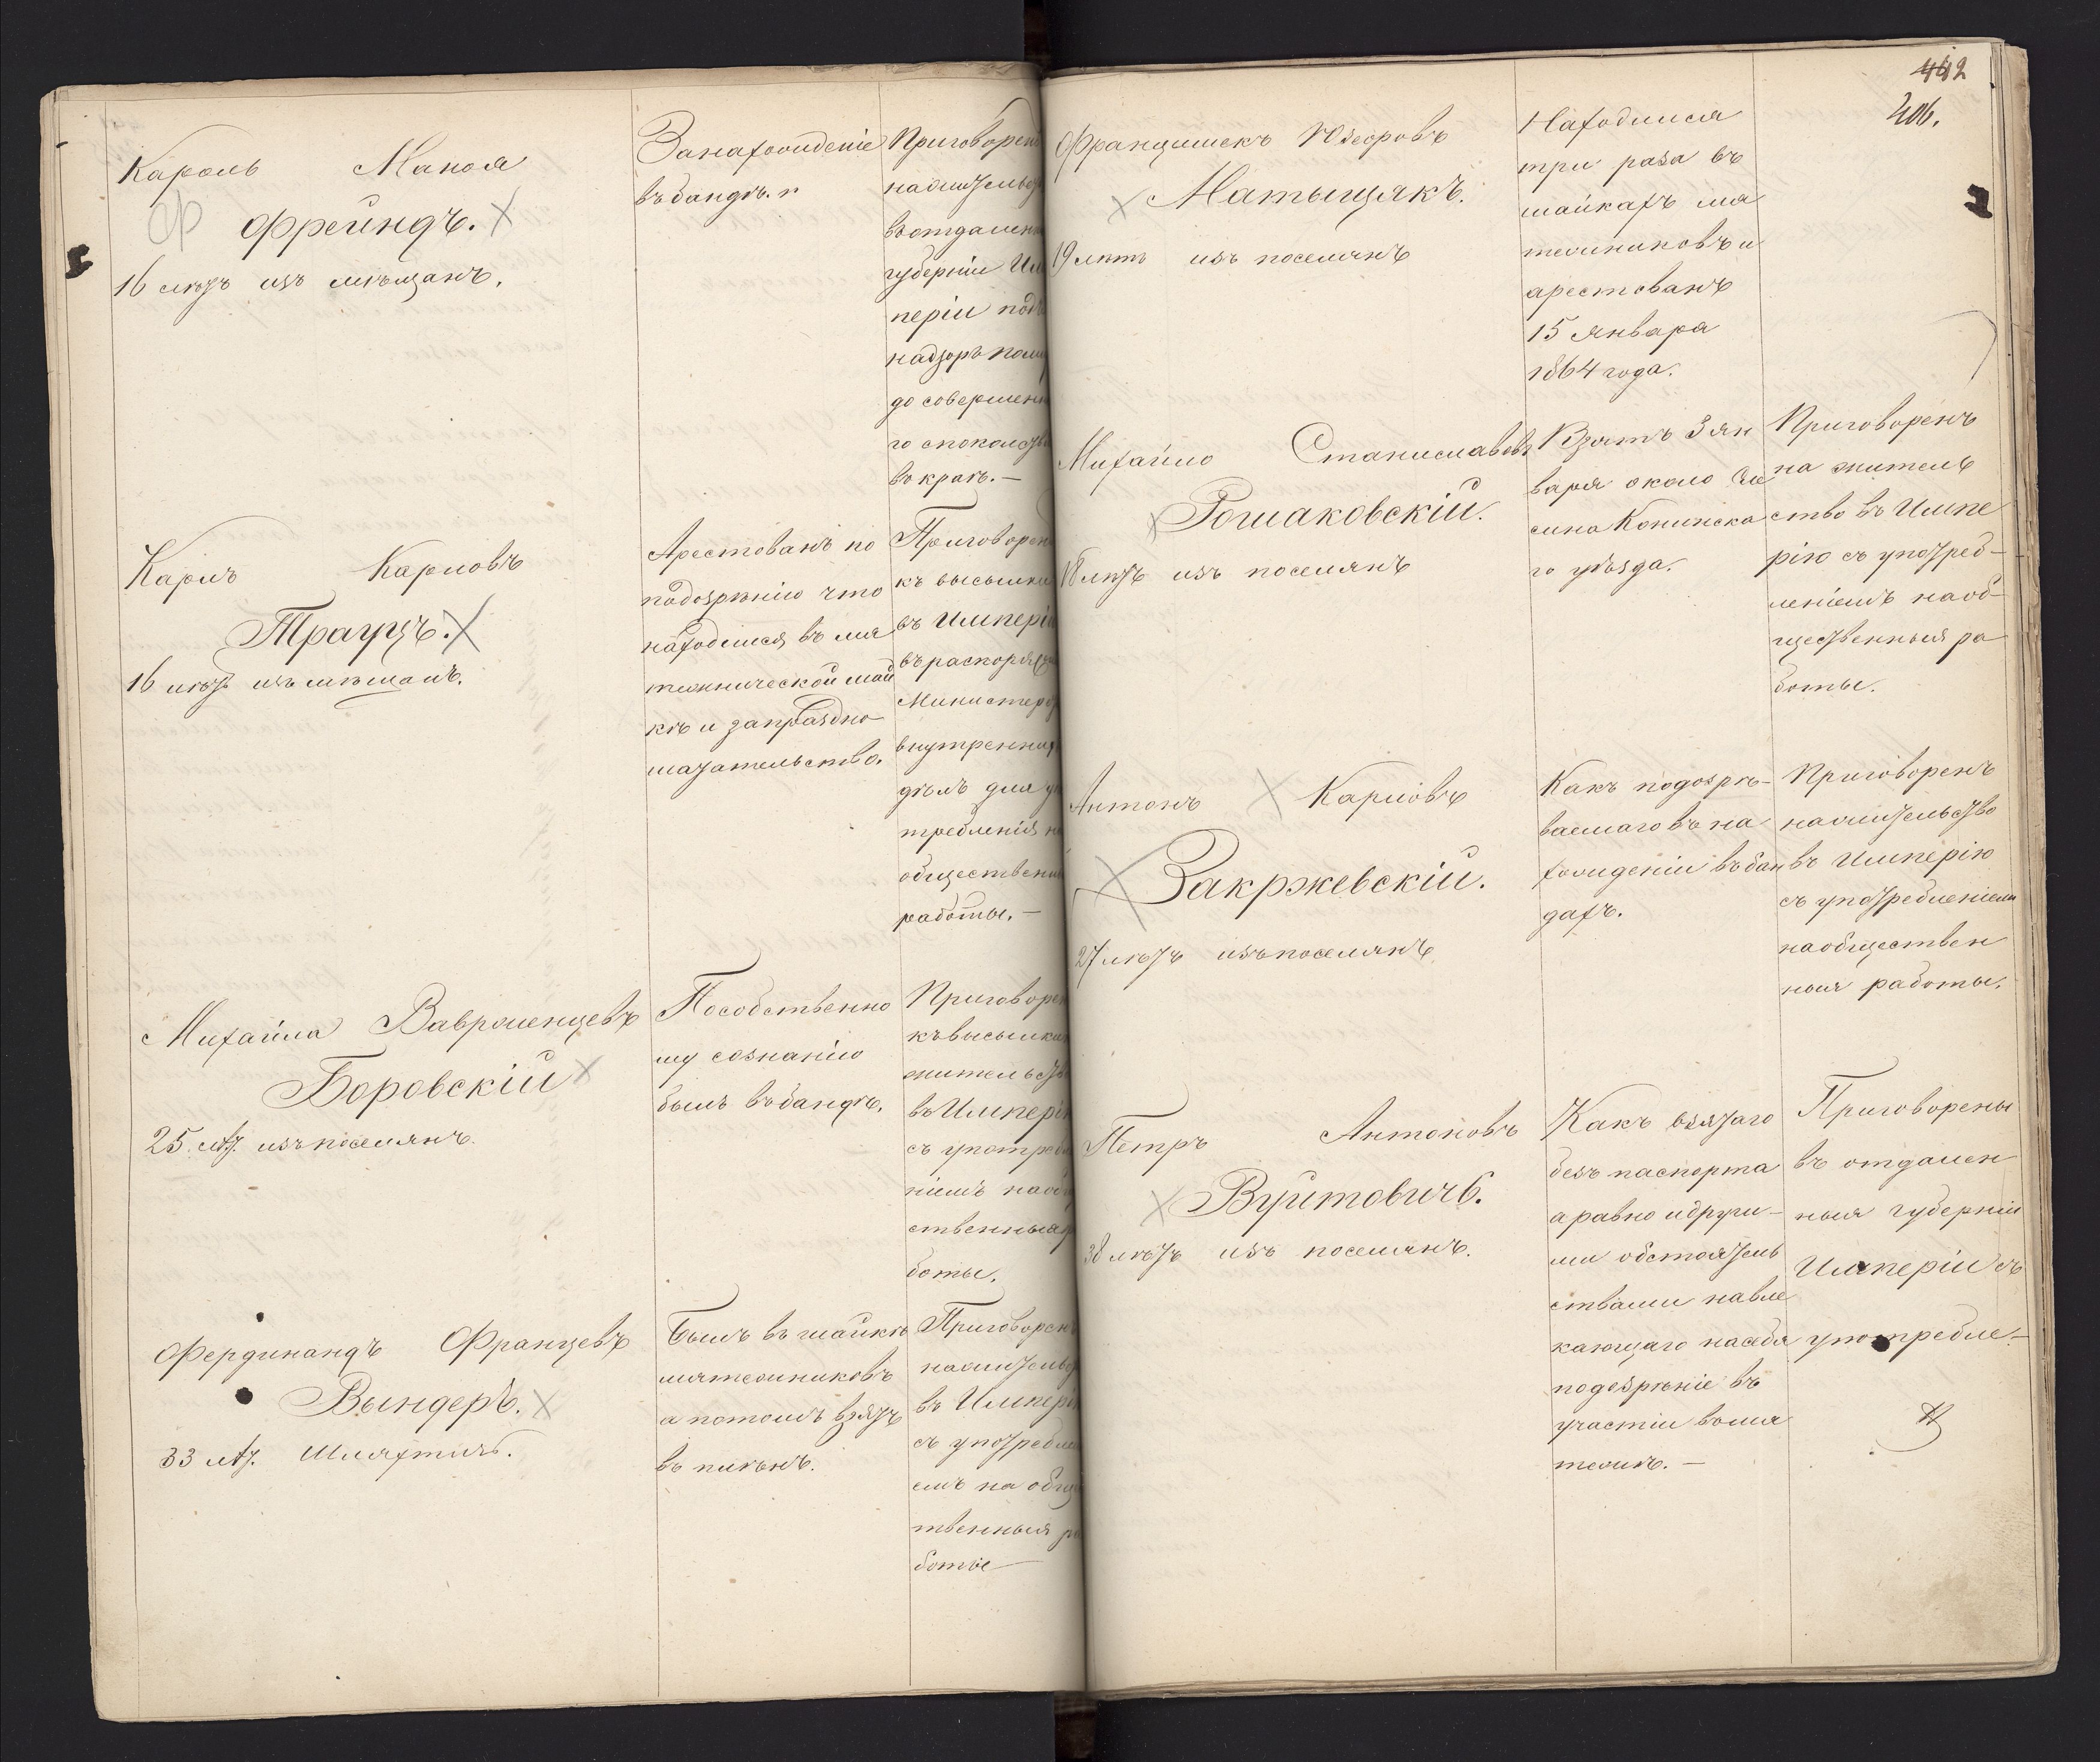 Кароль Манося
Фрейндъ.
16 лѣтъ изъ мѣщанъ.
За нахожденіе
въ бандѣ.
Приговоренъ
на жительст
въ отдален
губерніи Им
періи подъ
надзоръ поли
до совершен
го спокойств
въ краѣ. —
Карлъ Карловъ
Трауцъ.
16 лѣтъ изъ мѣщанъ.
Арестованъ по
подозрѣнію что
находился въ мя
тежнической шай
кѣ и за праздно
шатательство.
Приговоренъ
къ высылкѣ
въ Имперію
въ распоряже
Министерст
внутреннихъ
дѣлъ для у
требленія на
общественны
работы. —
Михайла Вавроменцевъ
Боровскій
25 лѣт. изъ поселянъ.
По собственно
му сознанію
былъ въ бандѣ.
Приговорен
къ высылкѣ
жительство
въ Имперію
съ употребл
ніемъ на общ
ственныя р
боты.
Фердинандъ Францевъ
Вындеръ.
33 лѣт. Шляхтичъ.
Былъ въ шайкѣ
мятежниковъ
а потомъ взятъ
въ плѣнъ.
Приговоренъ
на жительс
въ Имперію
съ употребле
емъ на общес
твенныя ра
боты
442
406.
Францишекъ Юзефовъ
Матыщакъ.
19 лѣтъ изъ поселянъ
Находился
три раза въ
шайкахъ мя
тежниковъ и
арестованъ
15 Января
1864 года.
Михайло Станиславовъ
Рошаковскій.
18 лѣтъ изъ поселянъ
Взятъ 3 ян
варя около Сле
сина Конинска
го уѣзда.
Приговоренъ
на житель
ство въ Импе
рію съ употреб-
леніемъ на об-
щественныя ра
боты.
Антонъ Карловъ
Закржевскій.
27 лѣтъ изъ поселянъ
Какъ подозрѣ-
ваемаго въ на
хожденіи въ бан
дахъ.
Приговоренъ
на жительство
въ Имперію
съ употребленіемъ
на обществен
ныя работы.
Петръ Антоновъ
Вуйтовичъ.
38 лѣтъ изъ поселянъ.
Какъ взятаго
безъ паспорта
а равно и други-
ми обстоятель
ствами навле
кающаго на себя
подозрѣніе въ
участіи въ мя
тежѣ. —
Приговорены
въ отдален
ныя губерніи
Имперіи съ
употребле-